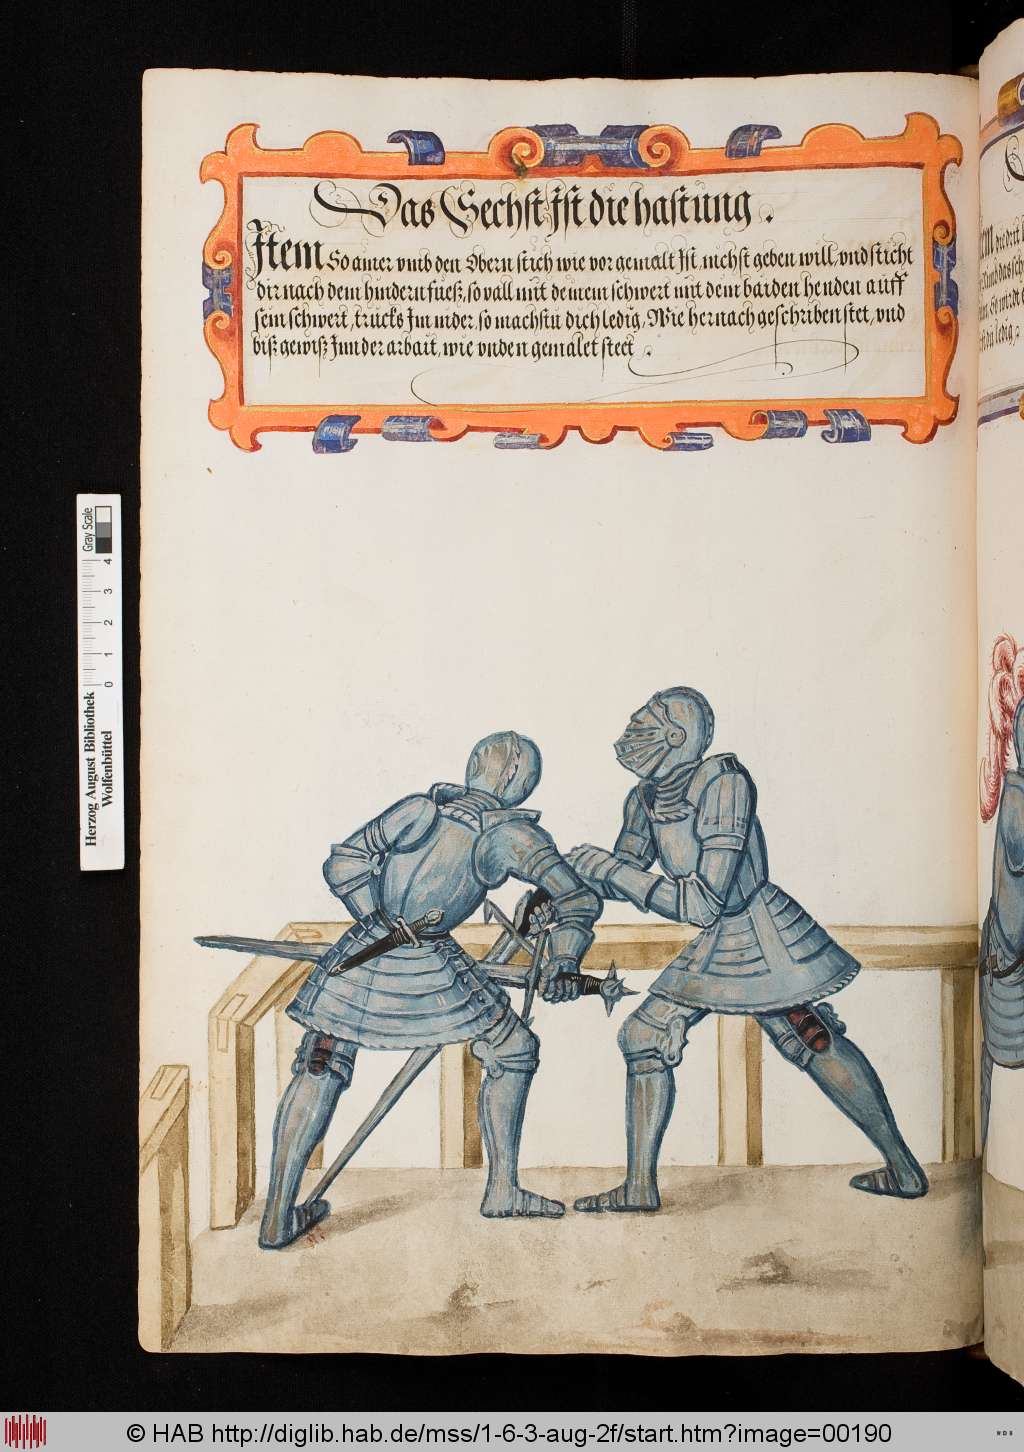 Das Sechst Ist die hastung.
Item So ainer vmb den Obern stich wie vor gemalt Ist, nichst geben will, vnd sticht
dir nach dem hindern fueß, so vall mit deinem schwert mit dem baiden henden auff
sein schwert, trucks Im nider, so machstu dich ledig, Wie hernach geschriben stet, vnd
biß gewiß Inn der arbait, wie vnden gemalet steet.
Herzog August Bibliothek
Wolfenbüttel
0 1 2 3 4
Gray Scale
© HAB http://diglib.hab.de/mss/1-6-3-aug-2f/start.htm?image=00190